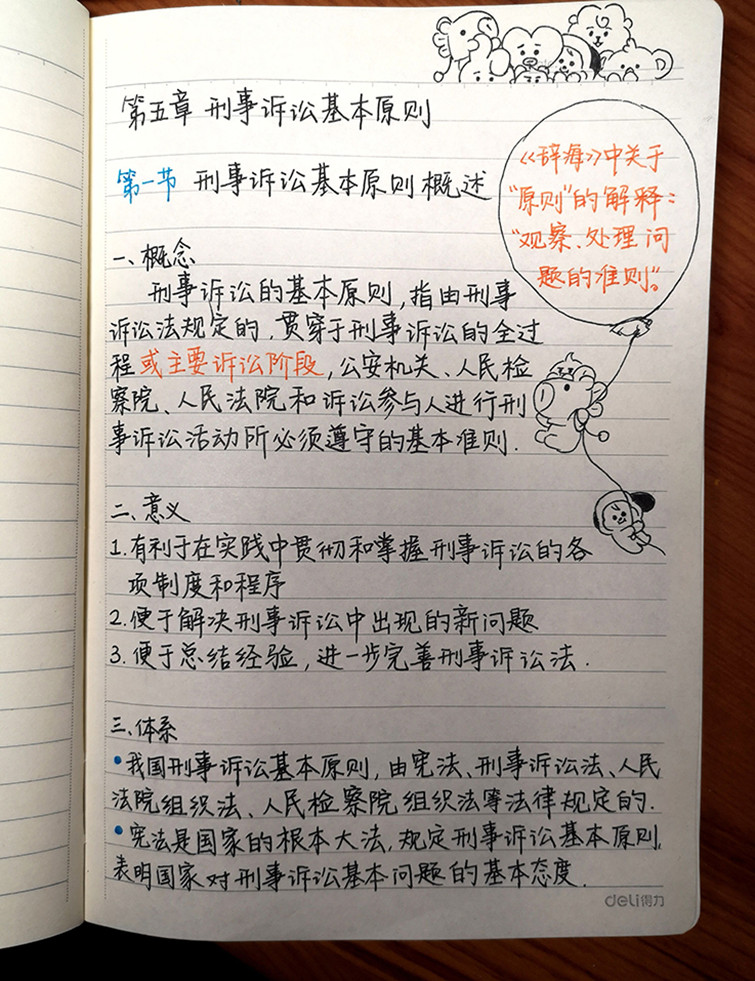 第五章 刑事诉讼基本原则
第一节 刑事诉讼基本原则概述
《辞海》中关于
"原则"的解释：
"观察、处理问
题的准则"。
一、概念
刑事诉讼的基本原则，指由刑事
诉讼法规定的，贯穿于刑事诉讼的全过
程或主要诉讼阶段，公安机关、人民检
察院、人民法院和诉讼参与人进行刑
事诉讼活动所必须遵守的基本准则.
二、意义
1.有利于在实践中贯彻和掌握刑事诉讼的各
项制度和程序
2.便于解决刑事诉讼中出现的新问题
3.便于总结经验，进一步完善刑事诉讼法.
三、体系
•我国刑事诉讼基本原则，由宪法、刑事诉讼法、人民
法院组织法、人民检察院组织法等法律规定的.
•宪法是国家的根本大法，规定刑事诉讼基本原则，
表明国家对刑事诉讼基本问题的基本态度.
deli得力